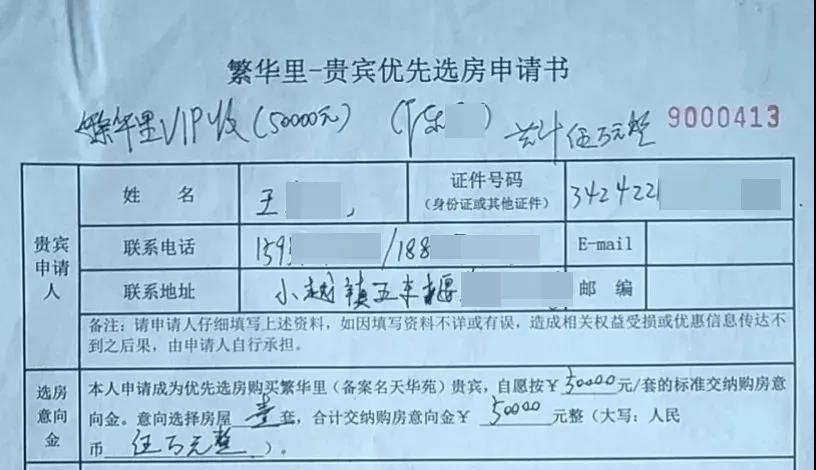 繁华里-贵宾优先选房申请书
繁华里VIP收(50000元) ( 乐 ) 共计伍万元整 9000413
贵宾申请人
姓 名 王 证件号码(身份证或其他证件) 3424221
联系电话 159 /188 E-mail
联系地址 小越镇五车堰 邮 编
备注:请申请人仔细填写上述资料,如因填写资料不详或有误,造成相关权益受损或优惠信息传达不
到之后果,由申请人自行承担。
选房意向金
本人申请成为优先选房购买繁华里(备案名天华苑)贵宾,自愿按¥50000元/套的标准交纳购房意
向金。意向选择房屋 壹 套,合计交纳购房意向金¥ 50000 元整(大写:人民
币 伍万元整 )。